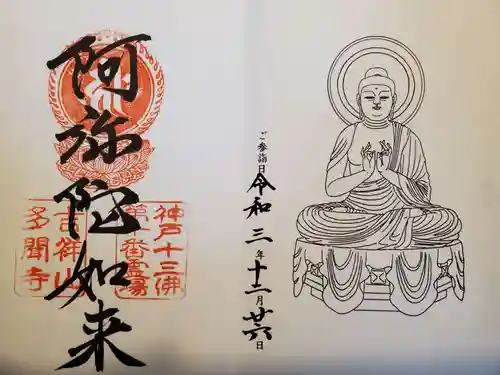 ご参詣日 令和三年十二月廿六日
阿弥陀如来
神戸十三佛
第十番霊場
吉祥山
多聞寺